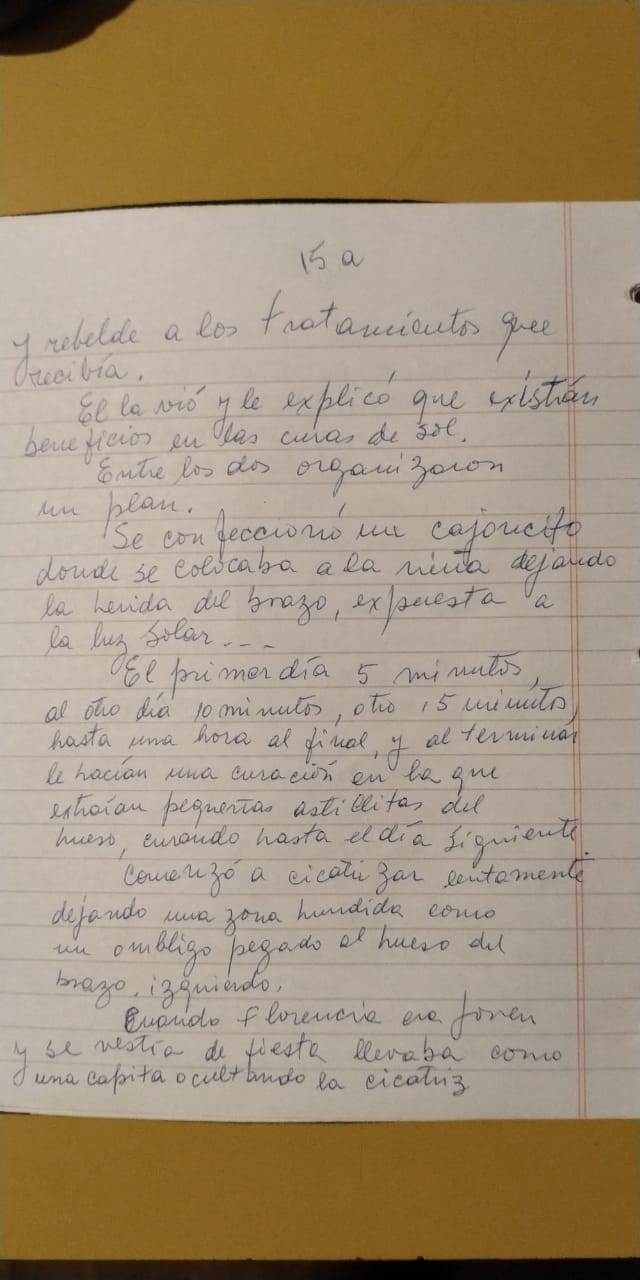 15 a
y rebelde a los tratamientos que
recibía.
El la vió y le explicó que existían
beneficios en las curas de sol.
Entre los dos organizaron
un plan.
Se confeccionó un cajoncito
donde se colocaba a la niña dejando
la herida del brazo, expuesta a
la luz solar...-
El primer día 5 minutos,
al otro día 10 minutos, otro 15 minutos,
hasta una hora al final, y al terminar
le hacían una curación en la que
extraían pequeñas astillitas del
hueso, curando hasta el día siguiente.
Comenzó a cicatrizar lentamente
dejando una zona hundida como
un ombligo pegado al hueso del
brazo, izquierdo.
Cuando Florencia era joven
y se vestía de fiesta llevaba como
una capita ocultando la cicatriz